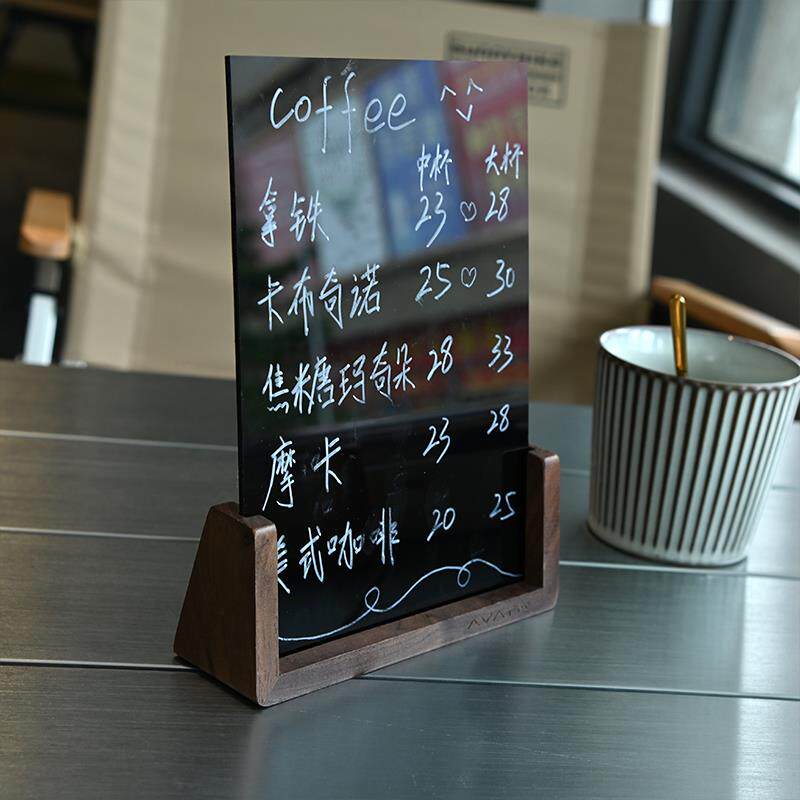 coffee ^_^
中杯 大杯
拿铁 23 ♡ 28
卡布奇诺 25 ♡ 30
焦糖玛奇朵 28 33
摩卡 23 28
美式咖啡 20 25